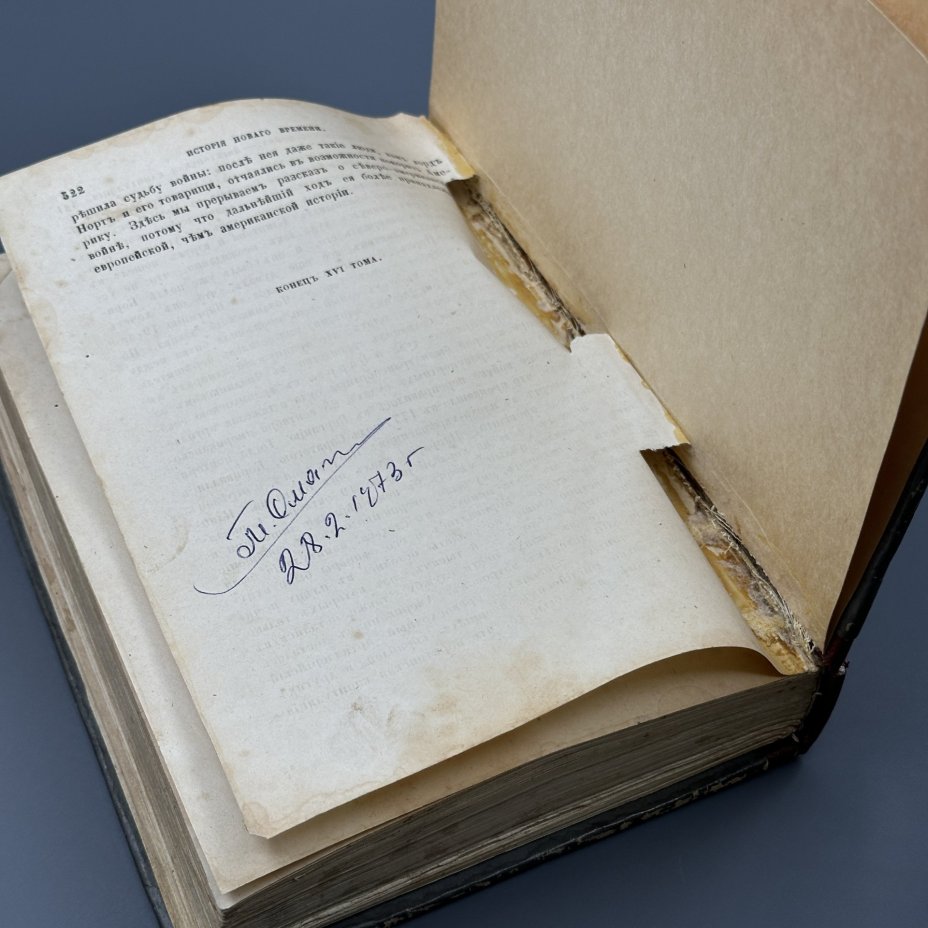 ИСТОРІЯ НОВАГО ВРЕМЕНИ.
522
рѣшила судьбу войны: послѣ нея даже такіе люди, какъ лордъ
Нортъ и его товарищи, отчаялись въ возможности
рику. Здѣсь мы прерываемъ разсказъ о
войнѣ, потому что дальнѣйшій ходъ ея болѣе
европейской, чѣмъ американской исторіи.
КОНЕЦЪ XVI ТОМА.
28.2.1973 г